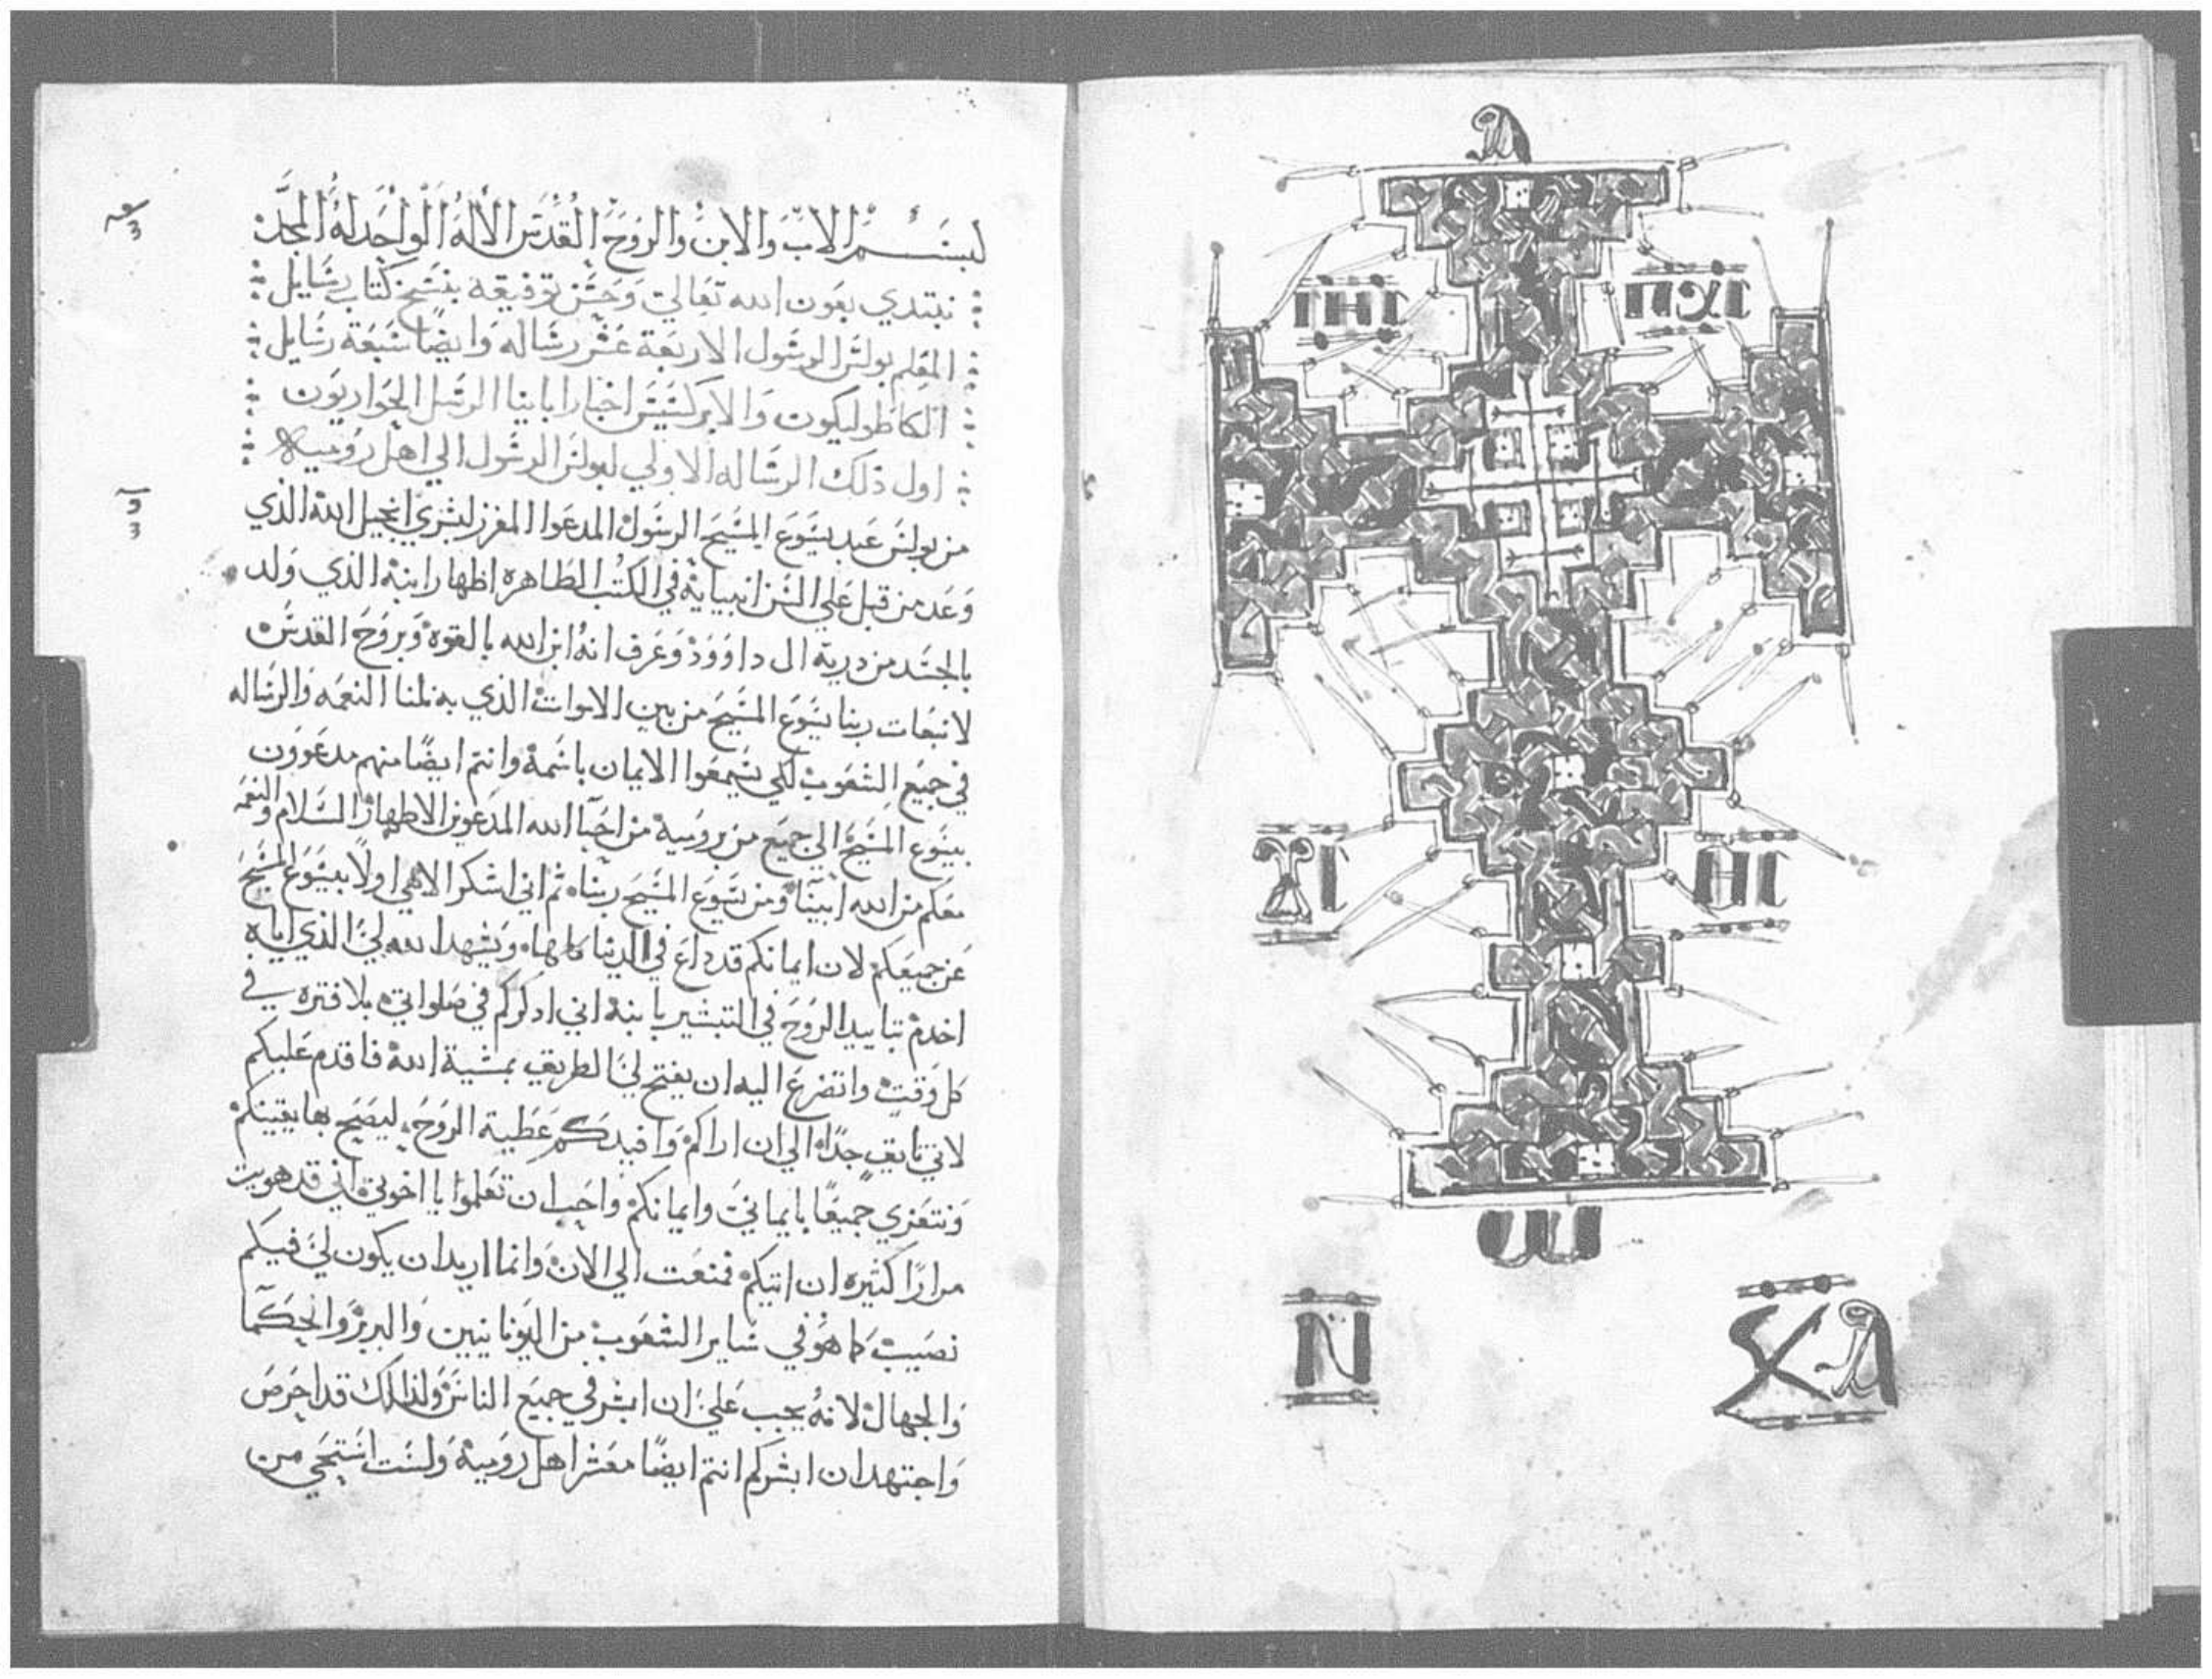 ⲓⲏⲥ
ⲡⲭⲥ
ⲩⲥ
ⲑⲥ
ⲛ
ⲕⲁ
ⲁ
ⲱ
بسم الاب والابن والروح القدس الاله الواحد له المجد
نبتدي بعون الله تعالي وحسن توفيقه بنسخ كتاب رسايل
المعلم بولس الرسول الاربعة عشر رساله وايضا سبعة رسايل
الكاطوليكون والابركسيس اخبار اباينا الرسل الحواريون
اول ذلك الرساله الاولي لبولس الرسول الي اهل روميه
من بولس عبد يسوع المسيح الرسول المدعوا المفرز لبشري انجيل الله الذي
وعد من قبل علي السن انبيايه في الكتب الطاهره اظهار ابنه الذي ولد
بالجسد من درية ال داوود وعرف انه ابن الله بالقوه وبروح القدس
لانبعات ربنا يسوع المسيح من بين الاموات الذي به نلنا النعمه والرساله
في جميع الشعوب لكي يسمعوا الايمان باسمه وانتم ايضا منهم مدعوون
بيسوع المسيح الي جميع من برومية من احبا الله المدعوين الاطهار السلام والنعمه
معكم من الله ابينا ومن يسوع المسيح ربنا ثم اني اشكر الاهي اولا بيسوع المسيح
عن جميعكم لان ايمانكم قد داع في الدنيا كلها ويشهد الله لي الذي اياه
اخدم بتاييد الروح في التبشير بابنه اني ادكركم في صلواتي بلا فتره في
كل وقت واتضرع اليه ان يفتح لي الطريق بمشية الله فاقدم عليكم
لاني تايق جدا الي ان اراكم وافيدكم عطية الروح ليصح بها يقينكم
ونتعزي جميعا بايماني وايمانكم واحب ان تعلموا يا اخوتي اني قد هويت
مرارا كثيره ان اتيكم فمنعت الي الان وانما اريد ان يكون لي فيكم
نصيب كما هو في ساير الشعوب من اليونانيين والبربر والحكما
والجهال لانه يجب علي ان ابشر في جميع الناس ولذالك قد احرص
واجتهد ان ابشركم انتم ايضا معشر اهل رومية ولست استحي من